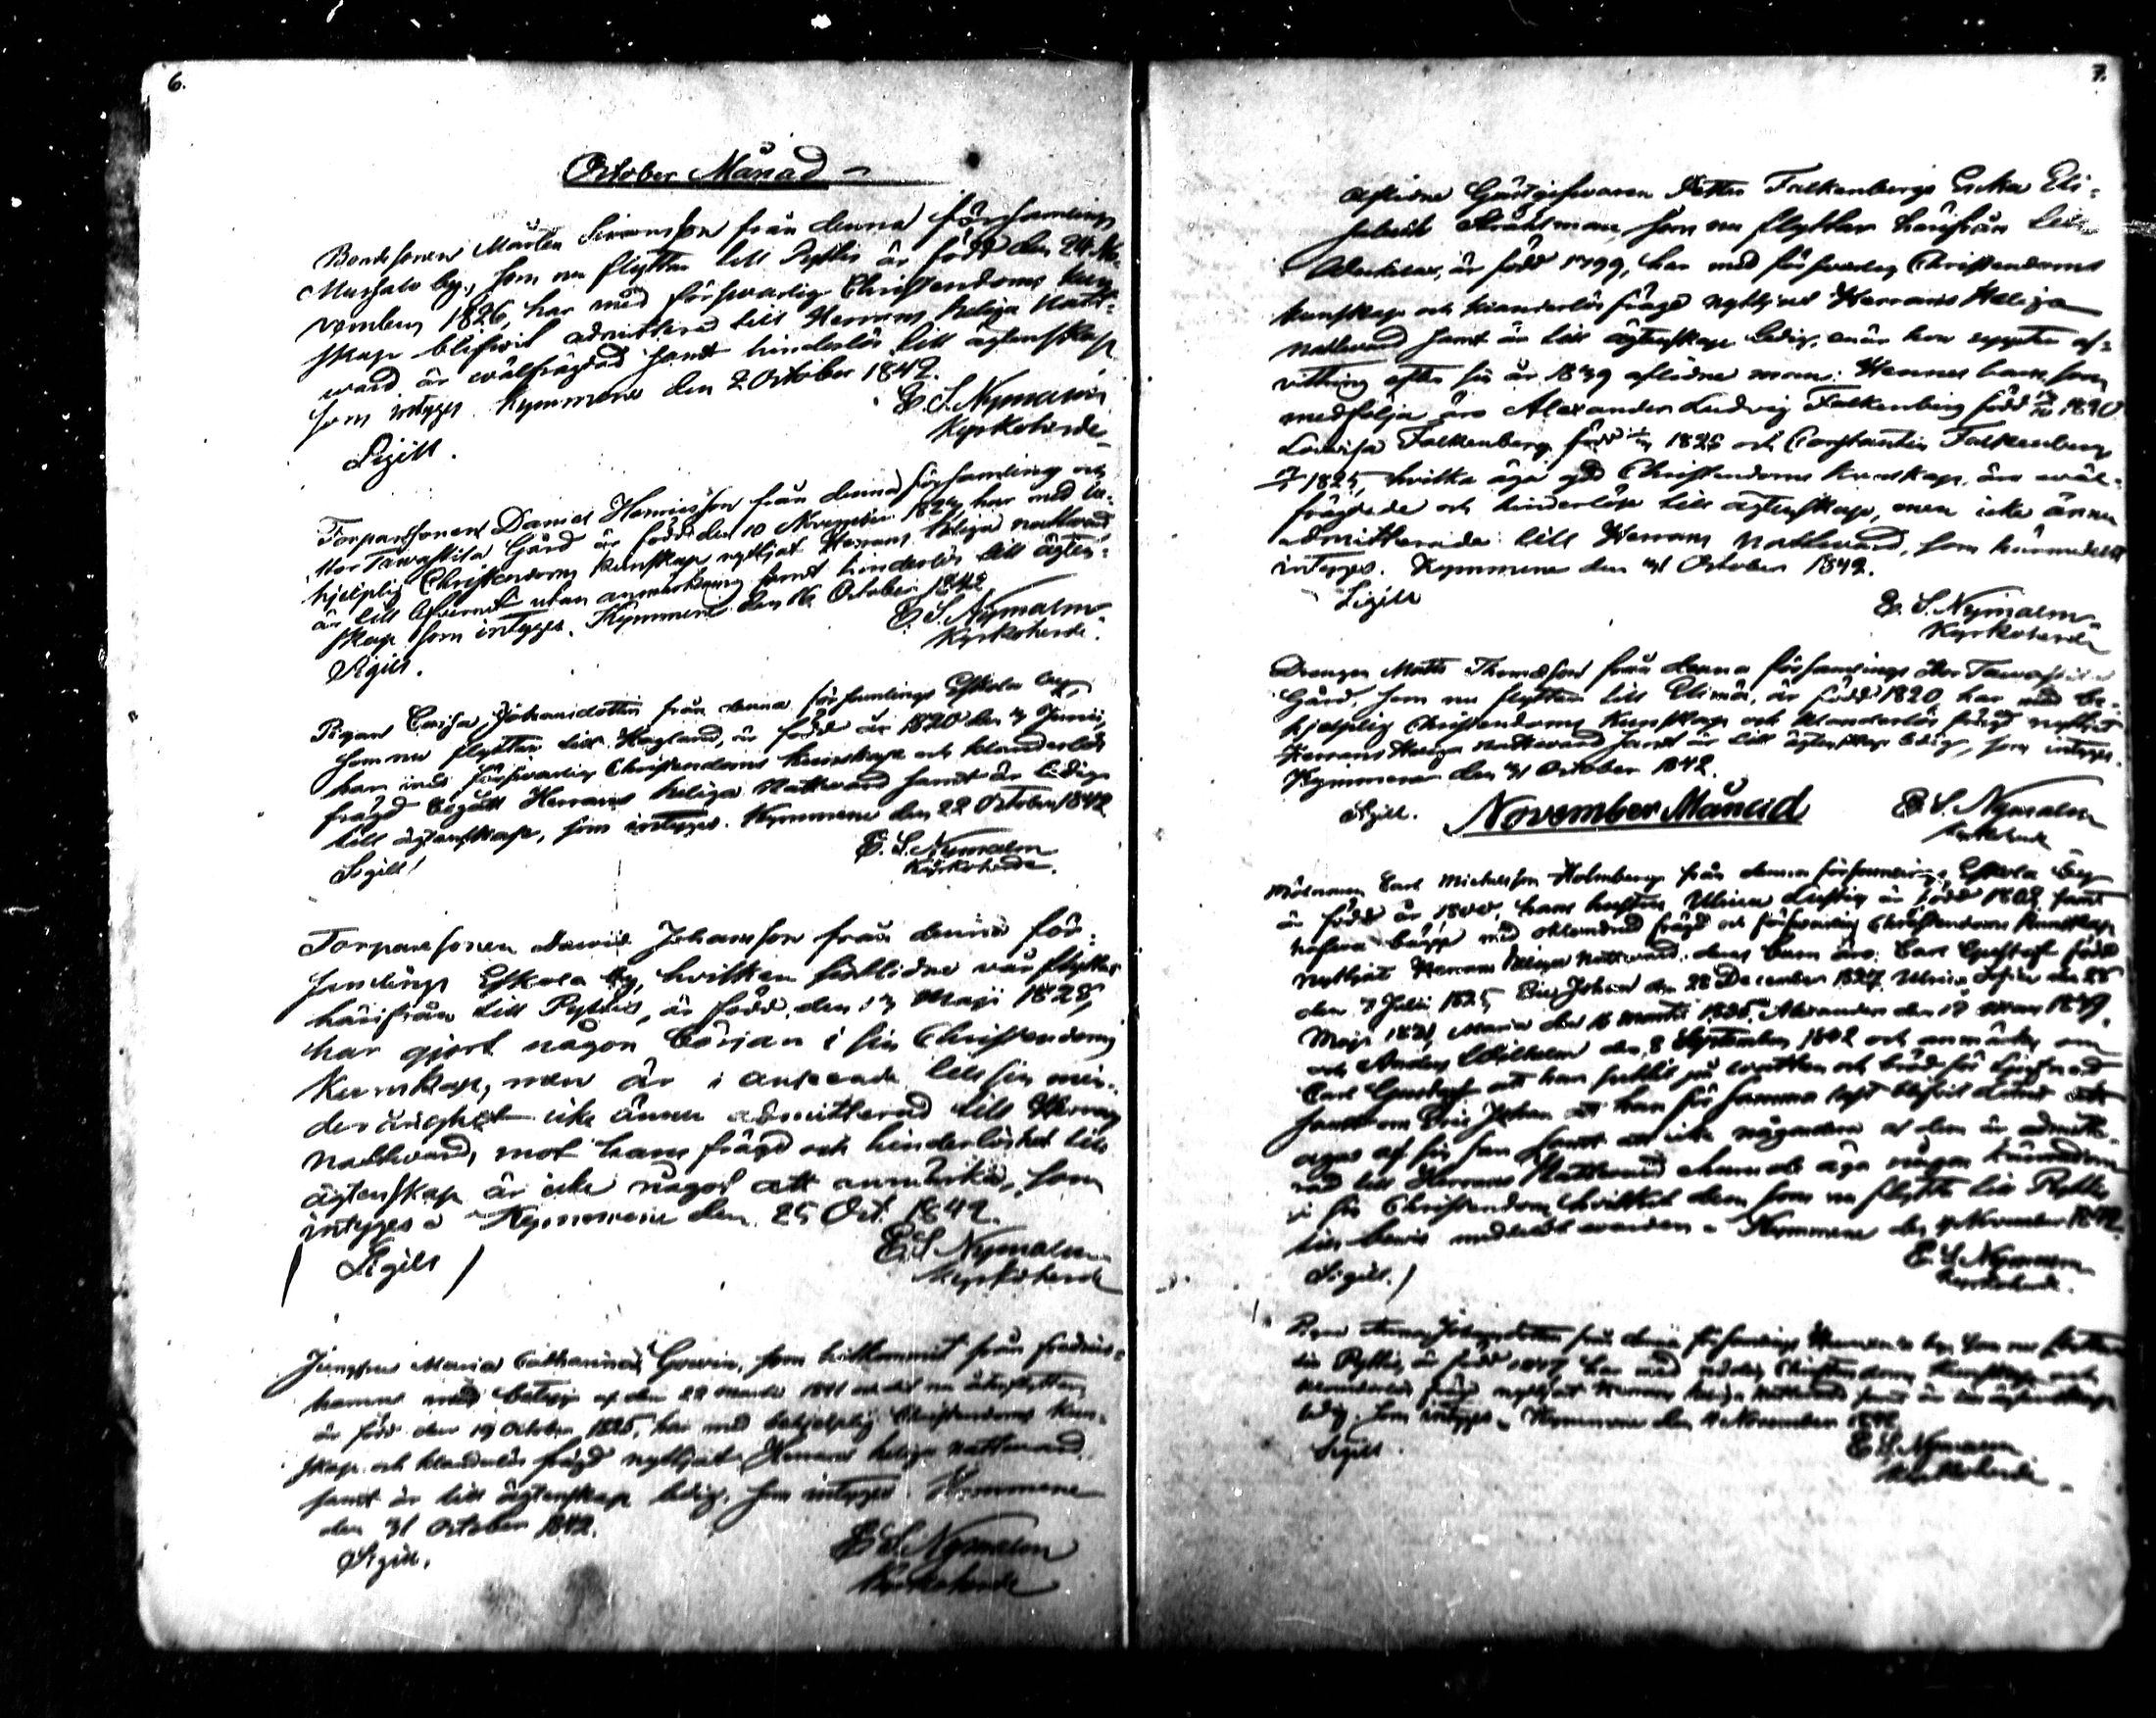 6.
October Månad
Bondesonen Mårten Simonsson från denna församlings
Mussalo by, som nu flyttar till Pyttis är född den 24 No-
vember 1826, har med försvarlig Christendoms kun-
skap blifvit admitterad till Herrans heliga Natt-
ward är wälfrägdad samt hinderlös till ägtenskap
som intygas. Kymmene den 2 October 1842.
E. S. Nymalm
Kyrkoherde
Sigill.
Torparesonen Daniel Henricsson från denna församling och
Stor Tawastila Gård är född den 10 November 1824 har med be-
hjelplig Christendoms kunskap nyttjat Herrans heliga nattward
är till lefvernet utan anmärkning samt hinderlös till ägten-
skap som intygas. Kymmene den 16 October 1842
E. S. Nymalm
Kyrkoherde.
Sigill.
Pigan Caisa Johansdotter från denna församlings Eskola by,
som nu flyttar till Hogland, är född år 1820 den 3 Junii,
har med försvarlig Christendoms kunskap och klanderlös
frägd begått Herrans heliga Nattward samt är ledig
till ägtenskap, som intygas. Kymmene den 22 October 1842
E. S. Nymalm
Kyrkoherde.
Sigill
Torparesonen David Johansson från denna för-
samlings Eskola by, hvilken sistlidne vår flyttat
härifrån till Pyttis, är född den 13 Maji 1828,
har gjort någon början i sin Christendoms
kunskap, men är i anseende till sin min-
derårighet icke ännu admitterad till Herrans
nattward, mot hans frägd och hinderlöshet till
ägtenskap är icke något att anmärka, som
intygas. Kymmene den 25 Oct. 1842.
E. S. Nymalm
Kyrkoherde
/ Sigill /
Jungfrun Maria Catharina som hitkommit från Fredriks-
hamn med betyg af den 22 1841 och dit nu återflyttar,
är född den 19 October 1825, har med behjelplig Christendoms kun-
skap och klanderlös frägd nyttjat Herrans heliga nattward
samt är till ägtenskap ledig, som intygas. Kymmene
den 31 October 1842.
E. S. Nymalm
Kyrkoherde
Sigill.
7.
Aflidne Gästgifvaren Petter Falkenbergs Enka Eli-
sabeth som nu flyttar härifrån till
är född 1799, har med försvarlig Christendoms
kunskap och klanderlös frägd nyttjat Herrans Heliga
Nattward samt är till ägtenskap ledig, enär hon af-
vittring efter sin år 1839 aflidne man. Hennes barn som
medfölja äro Alexander Ludvig Falkenberg född
Lovisa Falkenberg född 1826 och Constantin Falkenberg
1825, hvilka äga god Christendoms kunskap, äro wäl-
frägdade och hinderlöse till ägtenskap, men icke ännu
admitterade till Herrans Nattward, som härmedelst
intygas. Kymmene den 31 October 1842.
Sigill
E. S. Nymalm
Kyrkoherde
Drengen Matts Thomasson från denna församlings Stor Tawastila
Gård, som nu flyttar till Elimä, är född 1820, har med be-
hjelplig Christendoms kunskap och klanderlös frägd nyttjat
Herrans Heliga nattward samt är till ägtenskap ledig, som intygas.
Kymmene den 31 October 1842.
Sigill.
E. S. Nymalm
Kyrkoherde
November Månad
Mölnaren Carl Michelsson Holmberg från denna församlings Eskola by
är född år hans hustru Ulrica är född 1802 samt
hafva med frägd och försvarlig Christendoms kunskap
nyttjat Herrans Heliga Nattward, deras barn äro: Carl Gustaf född
den 3 Julii 1825, Eric Johan den 28 December 1827, Ulrica Sofia den 28
Maji 1831, Maria den 16 Martii 1835, Alexander den 1839,
och Anders Wilhelm den 8 September 1842 och anmärkes om
Carl Gustaf att han suttit på watten och bröd för
samt om Eric Johan att han för samma blifvit
agas af sin samt att icke någondera af dem är admitte-
rad till Herrans Nattward äga någon
i sin Christendom, hvilket dem som nu flytta till Pyttis
till bevis meddelat warder. Kymmene den November 1842
E. S. Nymalm
Kyrkoherde.
Sigill. /
Pigan Anna Johansdotter från denna församlings by, som nu flyttar
till Pyttis, är född har med Christendoms kunskap och
klanderlös frägd nyttjat Herrans heliga Nattward samt är till ägtenskap
ledig, som intygas. Kymmene den November 1842
E. S. Nymalm
Kyrkoherde
Sigill.